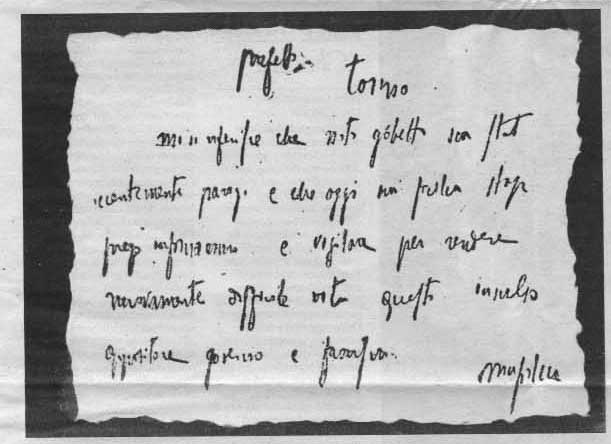 prefetto
Torino
mi si riferisce che noto gobetti sia stato
recentemente parigi e che oggi sia Sicilia stop
prego informarmi e vigilare per rendere
nuovamente difficile vita questo insulso
oppositore governo e fascismo.
Mussolini